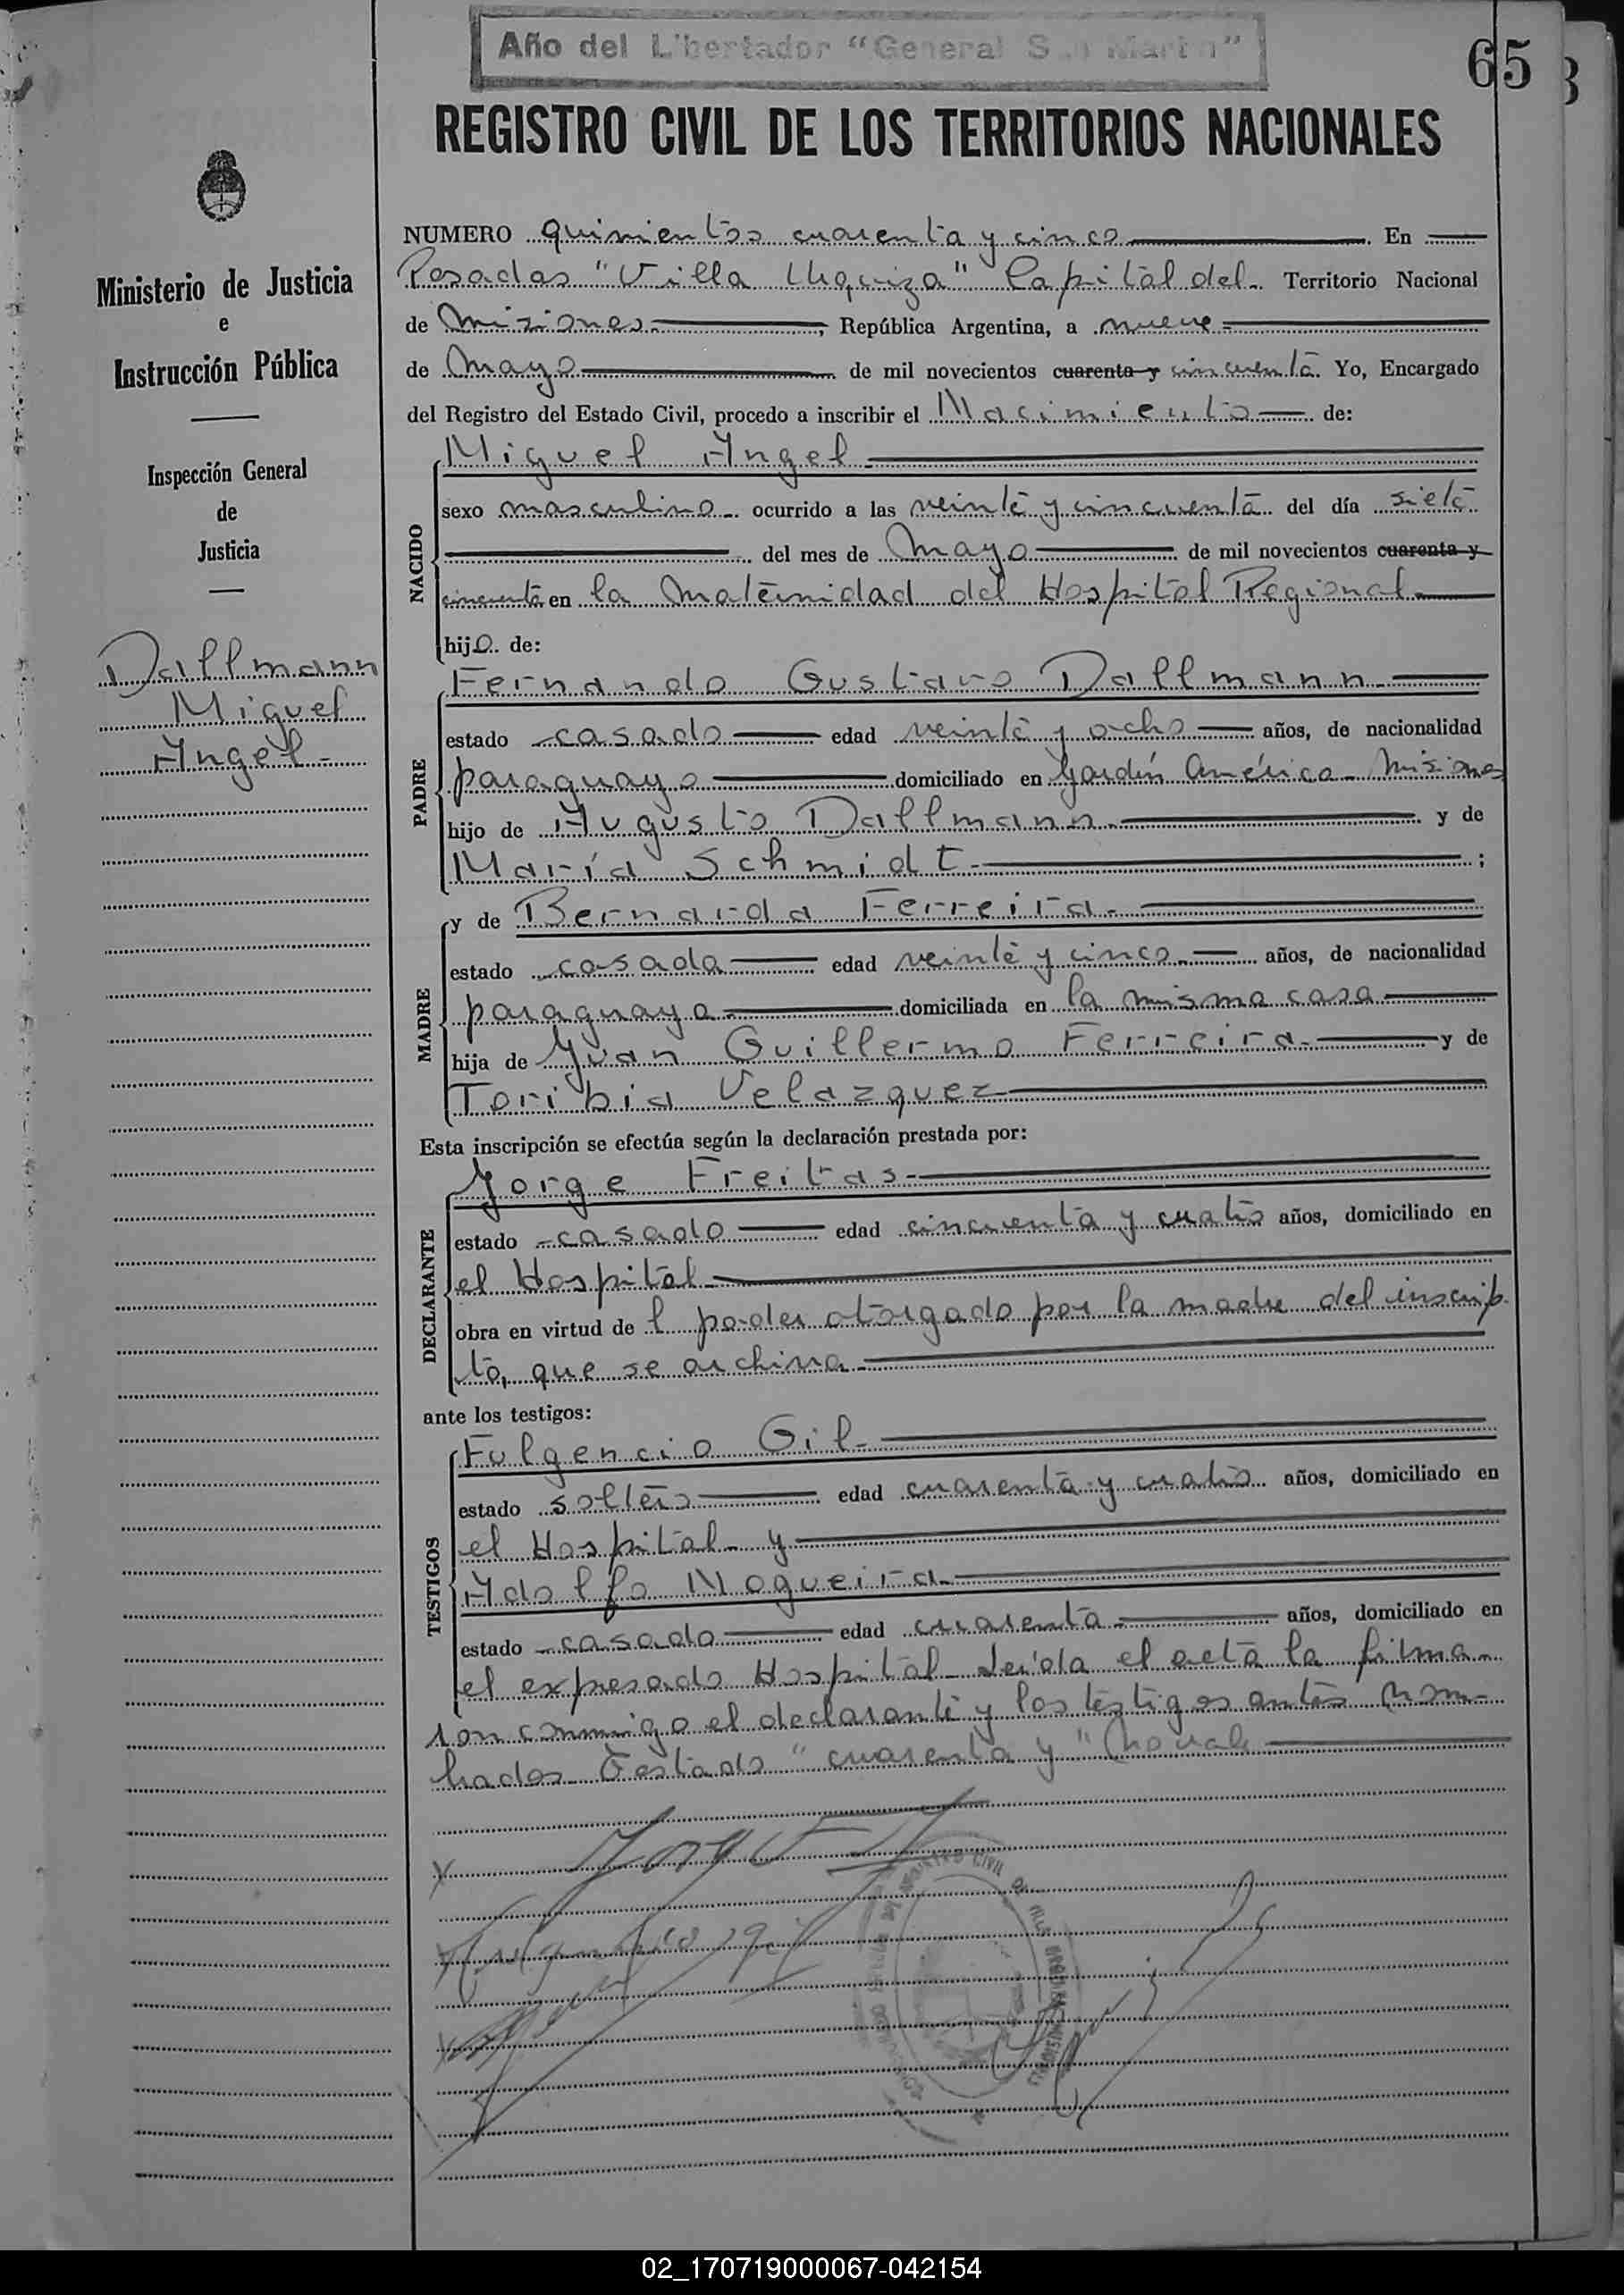 Año del Libertador "General San Martin"
65
REGISTRO CIVIL DE LOS TERRITORIOS NACIONALES
Ministerio de Justicia
e
Instrucción Pública
Inspección General
de
Justicia
Dallmann
Miguel
Angel
NUMERO quinientos cuarenta y cinco . En
Posadas "Villa Urquiza" Capital del Territorio Nacional
de Misiones , República Argentina, a nueve
de Mayo de mil novecientos cuarenta y cincuenta. Yo, Encargado
del Registro del Estado Civil, procedo a inscribir el Nacimiento de:
NACIDO
Miguel Angel
sexo masculino ocurrido a las veinte y cincuenta del día siete
del mes de Mayo de mil novecientos cuarenta y
cincuenta en la Maternidad del Hospital Regional
hijo de:
PADRE
Fernando Gustavo Dallmann
estado casado edad veinte y ocho años, de nacionalidad
paraguayo domiciliado en Jardín América Misiones
hijo de Augusto Dallmann y de
María Schmidt ;
MADRE
y de Bernarda Ferreira
estado casada edad veinte y cinco años, de nacionalidad
paraguaya domiciliada en la misma casa
hija de Juan Guillermo Ferreira y de
Toribia Velazquez
Esta inscripción se efectúa según la declaración prestada por:
DECLARANTE
Jorge Freitas
estado casado edad cincuenta y cuatro años, domiciliado en
el Hospital
obra en virtud de l poder otorgado por la madre del inscrip
to, que se archiva
ante los testigos:
TESTIGOS
Fulgencio Gil
estado soltero edad cuarenta y cuatro años, domiciliado en
el Hospital y
Adolfo Nogueira
estado casado edad cuarenta años, domiciliado en
el expresado Hospital Leída el acta la firma-
ron conmigo el declarante y los testigos antes nom-
brados Testado "cuarenta y" No vale
REGISTRO CIVIL
02_170719000067-042154